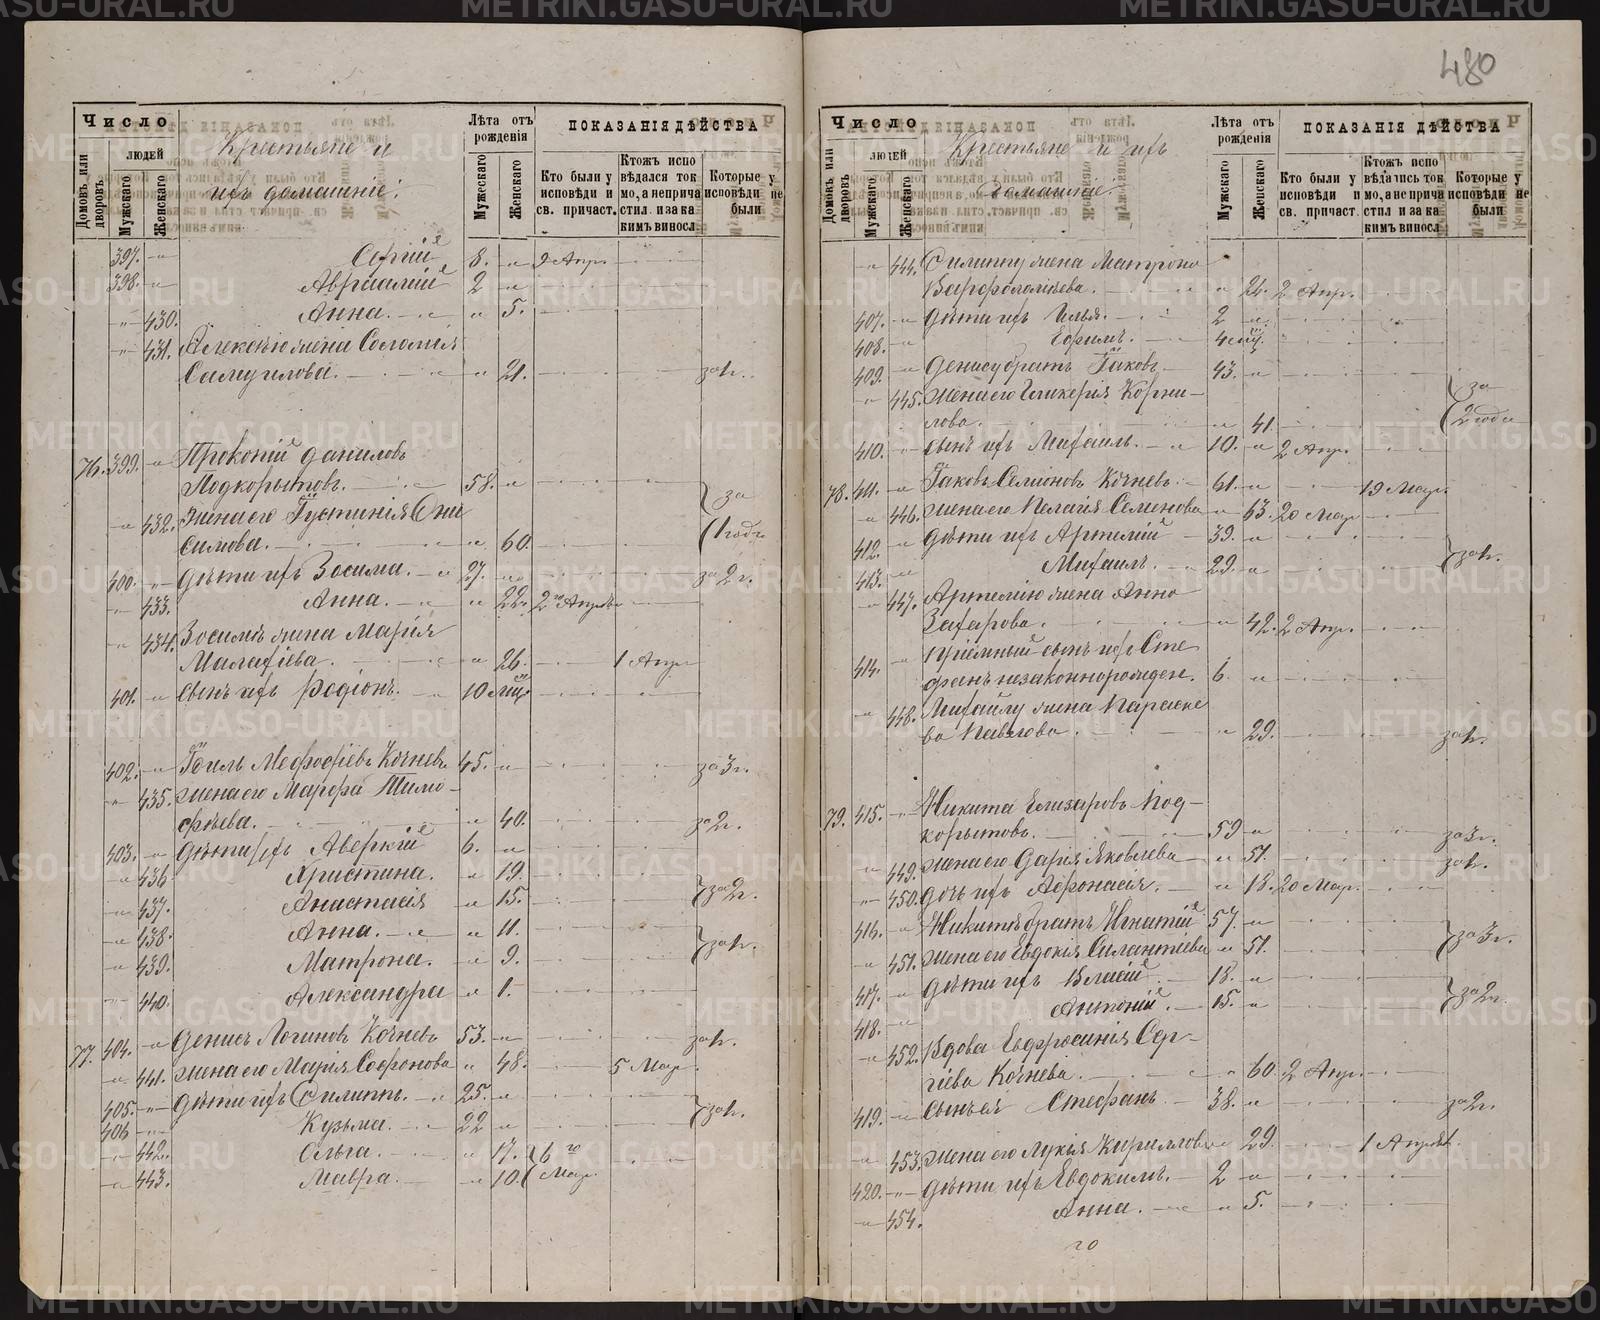 480
Число
людей
Домовъ или дворовъ
Мужскаго
Женскаго
Крестьяне и
ихъ домашніе:
Лѣта отъ рожденія
Мужескаго
Женскаго
ПОКАЗАНІЯ ДѢЙСТВА
Кто были у исповѣди и св. причаст.
Ктожъ исповѣдался токмо, а не причастил и за каким виносл
Которые у исповѣди не были
397. Сергій 8. 2 Апр.
398. Авраамій 2
430. Анна. 5.
431. Алексѣю жена Соломія
Самуилова. 21. за 1г.
76. 399. Прокопій Даниловъ
Подкорытовъ. 58. за
432. Жена его Іустинія Они
симова. 60. 1 годъ
400. Дѣти ихъ Зосима. 27. за 2 г.
433. Анна. 22. 2 го Апрѣля
434. Зосимѣ жена Марія
Малафіева. 26. 1 Апр
401. Сынъ ихъ Родіонъ. 10 мцъ
402. Іоиль Мефодіевъ Кочневъ 45. за 3 г.
435. жена его Марфа Тимо-
фѣева. 40. за 2 г.
403. Дѣти ихъ Аверкій 6.
436. Христина. 19.
437. Анастасія 15. за 2 г.
438. Анна. 11.
439. Матрона. 9. за 1г.
440. Александра 1.
77. 404. Денисъ Логиновъ Кочневъ 53. за 1г.
441. жена его Марія Софонова 48. 5 Мар.
405. Дѣти ихъ Филиппъ. 25.
406 Кузьма. 22 за 1г.
442. Ольга. 17. 6 го
443. Мавра. 10. Мар.
Число
людей
Домовъ или дворовъ
Мужскаго
Женскаго
Крестьяне и ихъ
домашніе:
Лѣта отъ рожденія
Мужскаго
Женскаго
ПОКАЗАНІЯ ДѢЙСТВА
Кто были у исповѣди и св. причаст.
Ктожъ исповѣдались токмо, а не причастил и за каким виносл
Которые у исповѣди не были
444. Филиппу жена Матрона
Варфоломѣева. 24. 2 Апр.
407. Дѣти ихъ Илья. 2
408. Ефимъ. 4 мц.
409. Денису братъ Іаковъ. 43. за
445. жена его Гликерія Корни-
лова. 41. 2 года
410. сынъ ихъ Михаилъ. 10. 2 Апр.
78. 411. Іаковъ Семіоновъ Кочневъ. 61. 19 Мар.
446. жена его Пелагія Семенова 63. 20 Мар
412. Дѣти ихъ Артемій 39.
413. Михаилъ. 29. за 1г.
447. Артемію жена Анна
Захарова. 42. 2 Апр.
414. пріемный сынъ ихъ Сте
фанъ незаконнорожден. 6.
448. Михаилу жена Параске
ва Павлова. 29. за 1г.
79. 415. Никита Елизаровъ Под-
корытовъ. 59 за 3г.
449. жена его Дарія Яковлева 51. за 1г.
450. дочь ихъ Афонасія. 18. 20 Мар.
416. Никитѣ братъ Игнатій 57.
451. жена его Евдокія Силантіева 51. за 3г.
417. Дѣти ихъ Власій 18.
418. Антоній. 15. за 2г.
452. Вдова Евфросинія Сер-
гіева Кочнева. 60. 2 Апр.
419. Сынъ ея Стефанъ. 38. за 2г.
453. жена его Лукія Кириллова 29. 1 Апрѣля.
420. Дѣти ихъ Евдокимъ. 2
454. Анна. 5.
го
METRIKI.GASO-URAL.RU